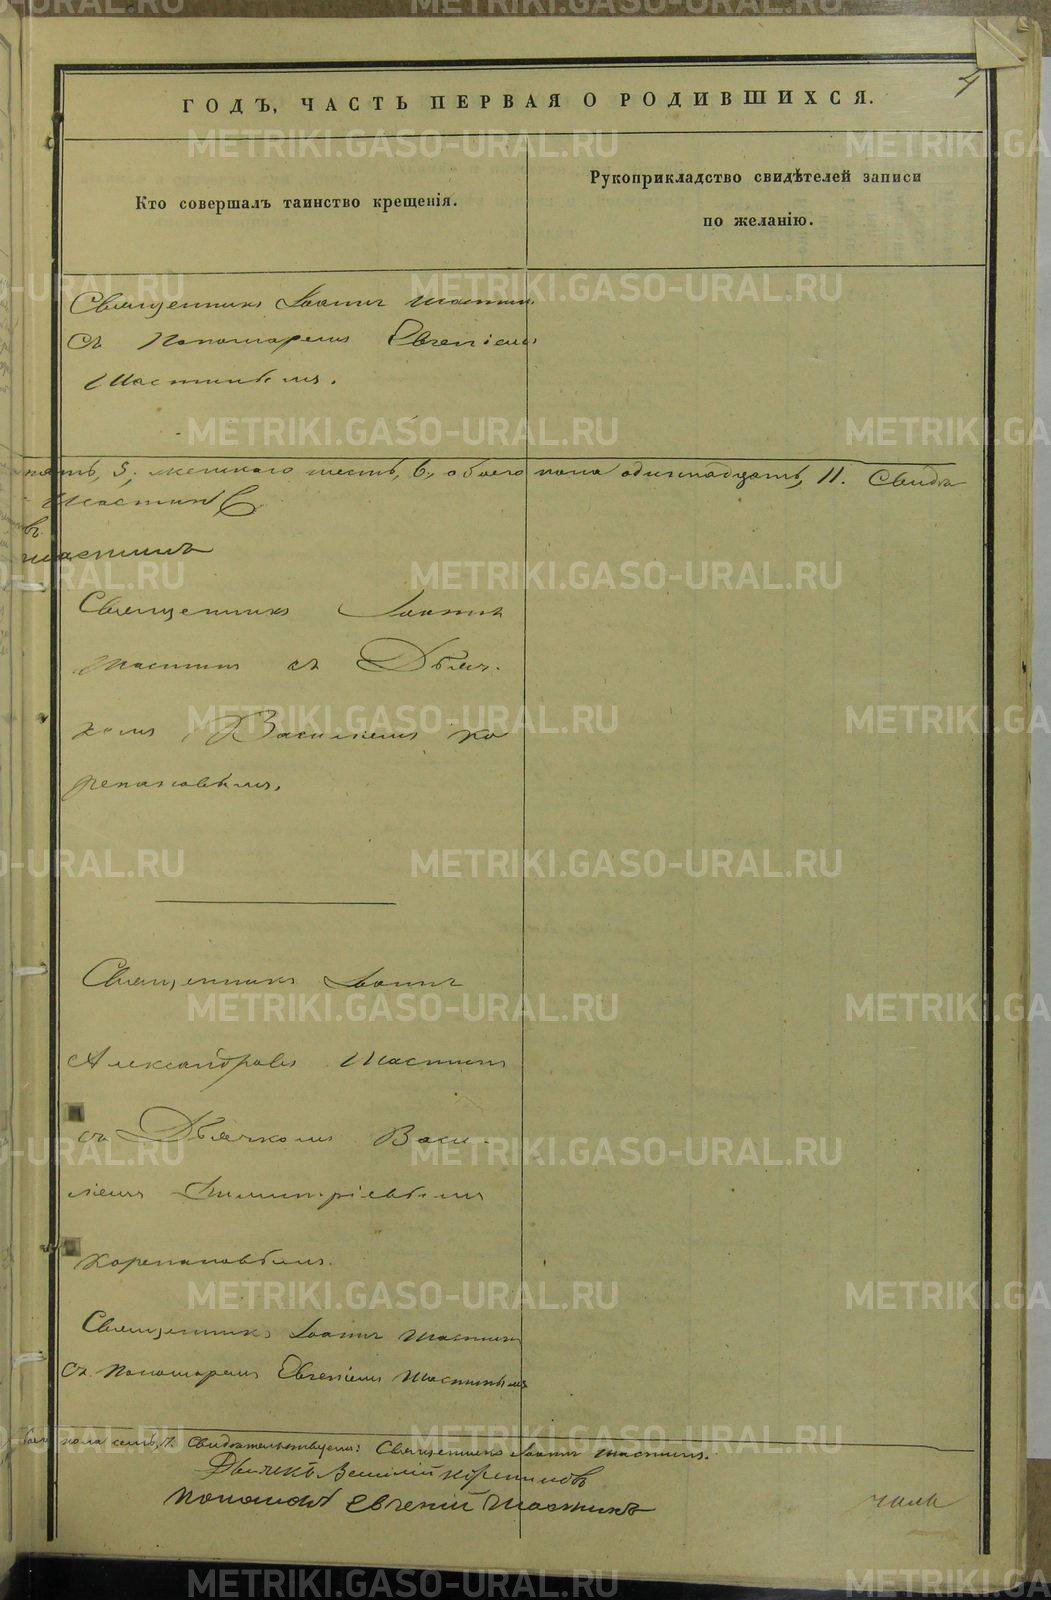 4
ГОДЪ, ЧАСТЬ ПЕРВАЯ О РОДИВШИХСЯ.
Кто совершалъ таинство крещенія.
Рукоприкладство свидѣтелей записи
по желанію.
Священникъ Іоаннъ Шастинъ
съ Пономаремъ Евгеніемъ
Шастинымъ.
пять, 5; женскаго шесть, 6, обоего пола одиннадцать, 11. Свидѣ
Шастинъ
въ
Шастинъ
Священникъ Іоаннъ
Шастинъ съ Дьяч-
комъ Василіемъ Ко
репановымъ.
Священникъ Іоаннъ
Александровъ Шастинъ
съ Дьячкомъ Васи-
ліемъ Димитріевымъ
Корепановымъ.
Священникъ Іоаннъ Шастинъ
съ Пономаремъ Евгеніемъ Шастинымъ
пола семь, 7. Свидѣтельствуемъ: Священникъ Іоаннъ Шастинъ.
Дьячекъ Василій Корепановъ
Пономарь Евгеній Шастинъ
METRIKI.GASO-URAL.RU